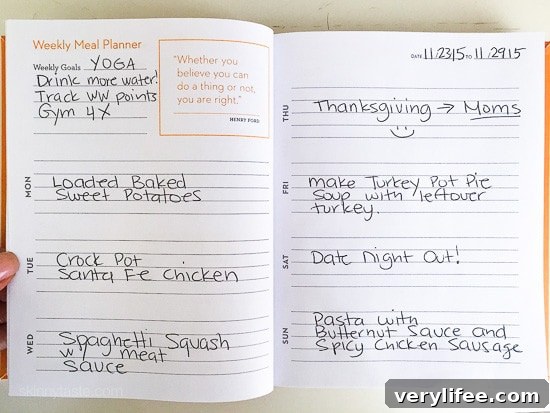 Weekly Meal Planner
Weekly Goals YOGA
Drink more water!
Track WW points
Gym 4X
"Whether you
believe you can
do a thing or not,
you are right."
HENRY FORD
MON
Loaded Baked
Sweet Potatoes
TUE
Crock Pot
Santa Fe Chicken
WED
Spaghetti Squash
w/ meat
Sauce
DATE 11/23/15 TO 11/29/15
THU
Thanksgiving → Moms
FRI
make Turkey Pot Pie
Soup with leftover
turkey.
SAT
Date night Out!
SUN
Pasta with
Butternut Sauce and
Spicy Chicken Sausage
verylifee.com